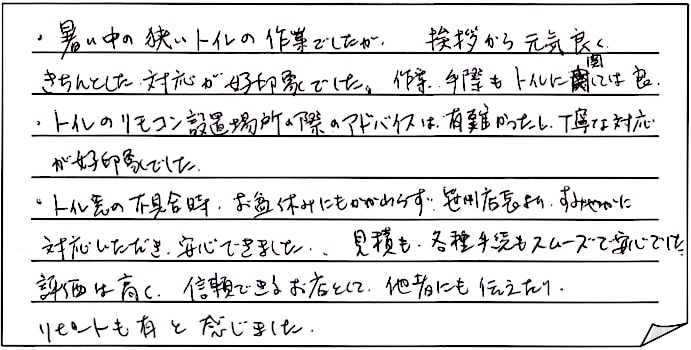 ・暑い中の狭いトイレの作業でしたが、挨拶から元気良く
きちんとした対応が好印象でした。作業、手際もトイレに関しては良。
・トイレのリモコン設置場所の際のアドバイスは、有難かったし、丁寧な対応
が好印象でした。
・トイレ の不具合時、お盆休みにもかかわらず、笹川店長より、すみやかに
対応いただき、安心できました、、見積も、各種手続もスムーズで安心でした
評価は高く、信頼できるお店として、他者にも伝えたり、
リピートも有と感じました.